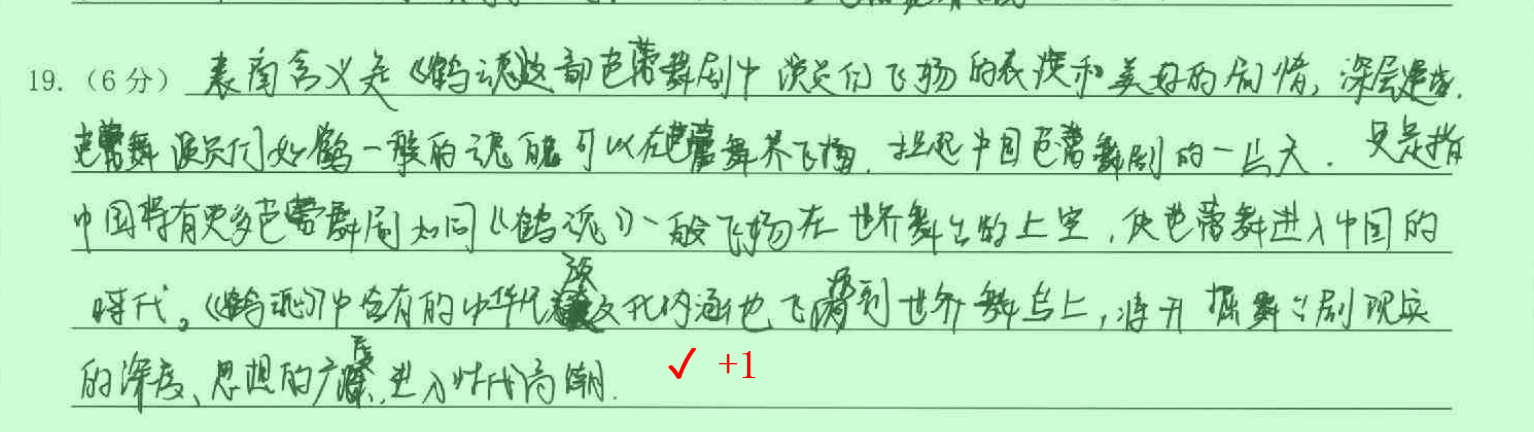 19.（6分）表面含义是《鹤魂》这部芭蕾舞剧中演员们飞扬的表演和美好的剧情，深层是指
芭蕾舞演员们如鹤一般的魂魄可以在芭蕾舞界飞扬，撑起中国芭蕾舞剧的一片天．更是指
中国将有更多芭蕾舞剧如同《鹤魂》一般飞扬在世界舞台的上空，使芭蕾舞进入中国的
时代。《鹤魂》中含有的中华民族文化内涵也飞扬到世界舞台上，将开掘舞台剧现实
的深度、思想的广度，进入时代高潮．
✓ +1